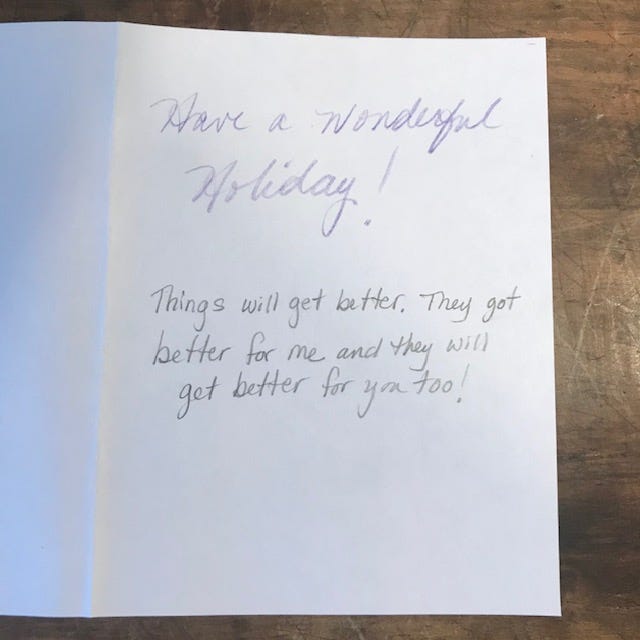 Have a Wonderful
Holiday!
Things will get better. They got
better for me and they will
get better for you too!